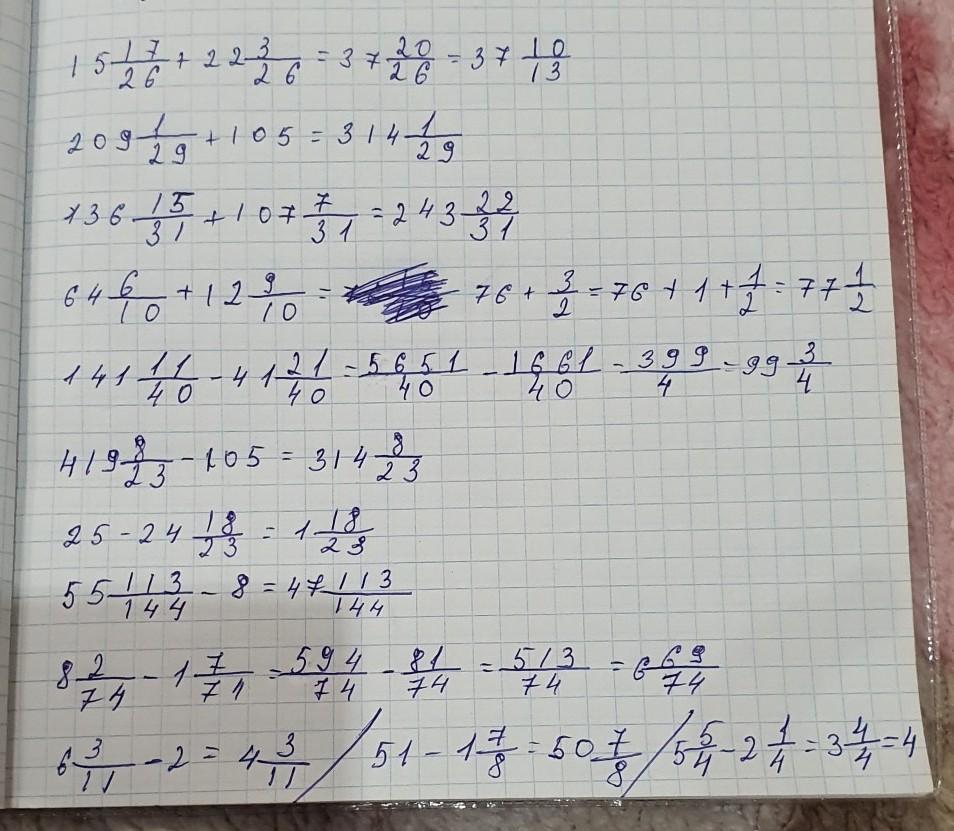 15 17/26 + 22 3/26 = 37 20/26 = 37 10/13
209 1/29 + 105 = 314 1/29
136 15/31 + 107 7/31 = 243 22/31
64 6/10 + 12 9/10 = 76 + 3/2 = 76 + 1 + 1/2 = 77 1/2
141 11/40 - 41 21/40 = 5651/40 - 1661/40 = 399/4 = 99 3/4
419 8/23 - 105 = 314 8/23
25 - 24 18/23 = 1 18/23
55 113/144 - 8 = 47 113/144
8 2/74 - 1 7/74 = 594/74 - 81/74 = 513/74 = 6 69/74
6 3/11 - 2 = 4 3/11 / 51 - 1 7/8 = 50 7/8 / 5 5/4 - 2 1/4 = 3 4/4 = 4